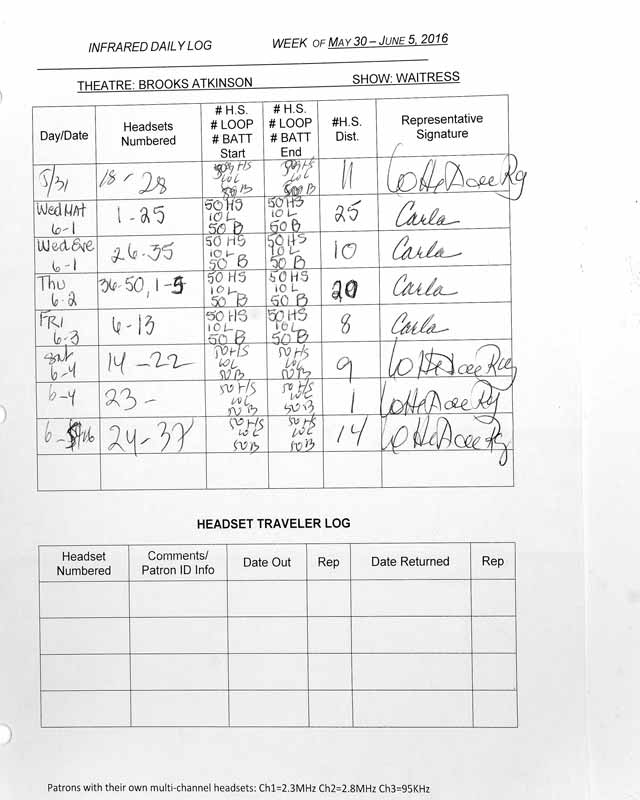 INFRARED DAILY LOG WEEK OF MAY 30 – JUNE 5, 2016
THEATRE: BROOKS ATKINSON SHOW: WAITRESS
Day/Date Headsets Numbered # H.S. # LOOP # BATT Start # H.S. # LOOP # BATT End #H.S. Dist. Representative Signature
5/31 18 - 28 50 HS 10L 50 B 11
Wed MAT 6-1 1-25 50 HS 10 L 50 B 50 HS 10 L 50 B 25 Carla
Wed Eve 6-1 26-35 50 HS 10 L 50 B 50 HS 10 L 50 B 10 Carla
Thu 6-2 36-50, 1-5 50 HS 10 L 50 B 50 HS 10 L 50 B 20 Carla
FRI 6-3 6-13 50 HS 10 L 50 B 50 HS 10 L 50 B 8 Carla
Sat 6-4 14-22 50 HS 10L 50 B 50 HS 10L 50 B 9
6-4 23 - 50 HS 10L 50 B 50 HS 10L 50 B 1
24-37 50 HS 10L 50 B 50 HS 10L 50 B 14
HEADSET TRAVELER LOG
Headset Numbered Comments/ Patron ID Info Date Out Rep Date Returned Rep
Patrons with their own multi-channel headsets: Ch1=2.3MHz Ch2=2.8MHz Ch3=95KHz